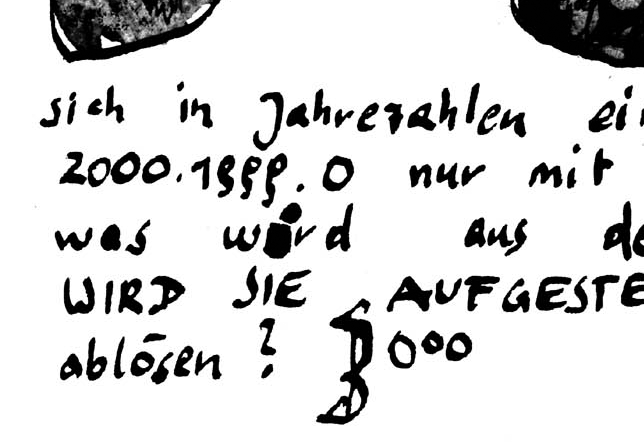 sich in Jahrezahlen ei
2000.1999.0 nur mit
was wird aus de
WIRD SIE AUFGESTE
ablösen ? } 0°°0